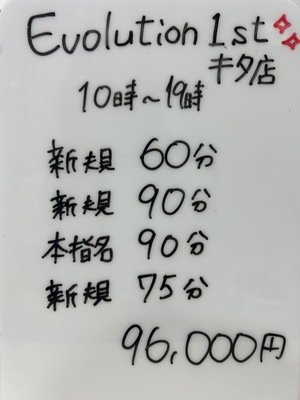 Evolution 1st
キタ店
10時~19時
新規 60分
新規 90分
本指名 90分
新規 75分
96,000円